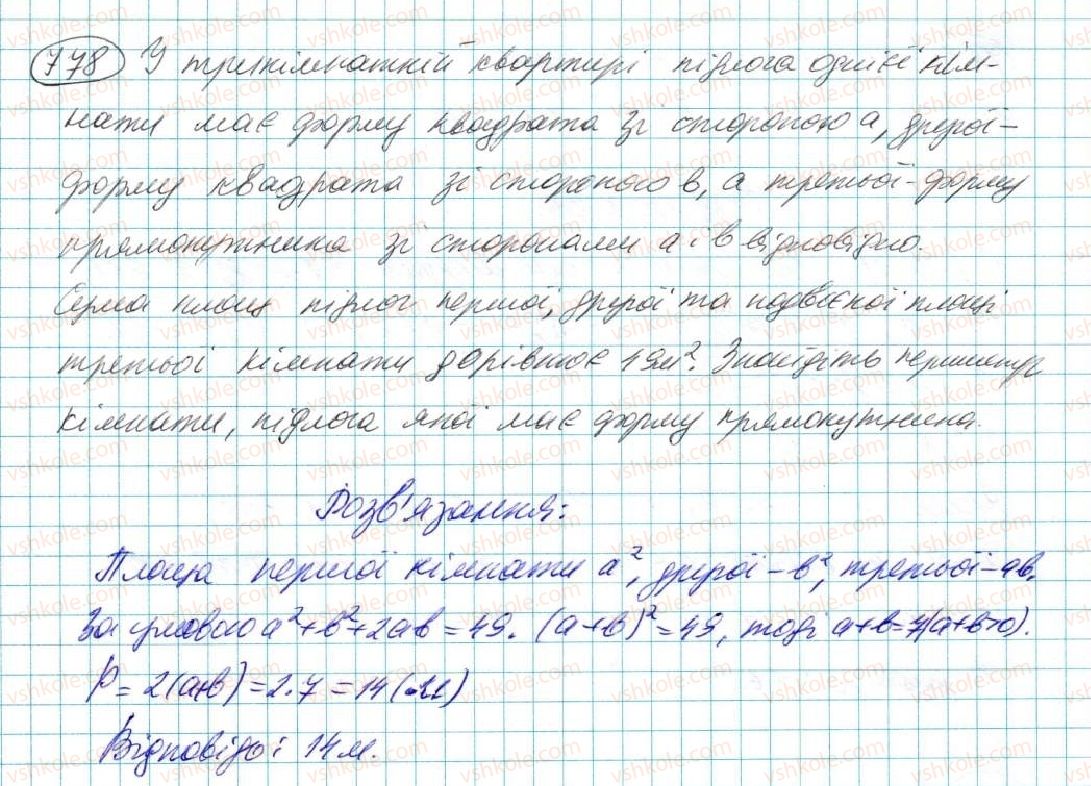 778 У трикімнатній квартирі підлога однієї кім-
нати має форму квадрата зі стороною a, другої –
форму квадрата зі стороною в, а третьої – форму
прямокутника зі сторонами a і в відповідно.
Сума площ підлог першої, другої та подвоєної площі
третьої кімнати дорівнює 49м². Знайдіть периметр
кімнати, підлога якої має форму прямокутника.
Розв'язання:
Площа першої кімнати a², другої – в², третьої – aв.
За умовою a² + в² + 2aв = 49. (a+в)² = 49, тоді a+в=7 (a+в>0).
P = 2(a+в) = 2·7 = 14 (м)
Відповідь: 14м.